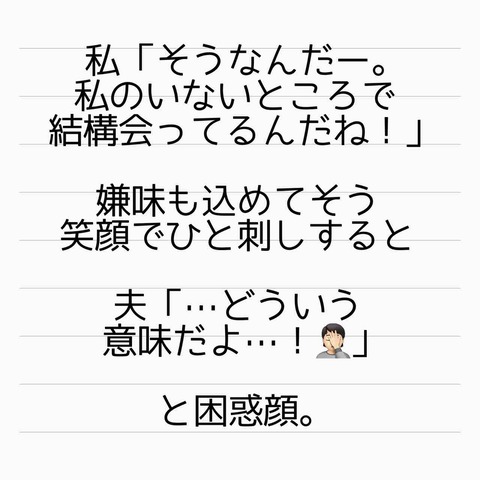 私「そうなんだー。
私のいないところで
結構会ってるんだね！」
嫌味も込めてそう
笑顔でひと刺しすると
夫「…どういう
意味だよ…！🤦🏻‍♂️」
と困惑顔。